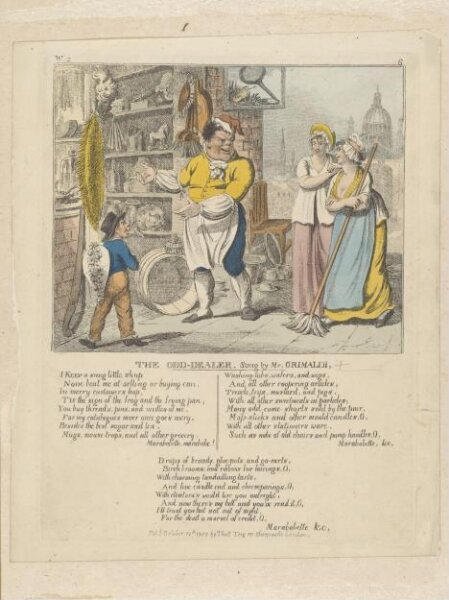 6
THE ODD-DEALER. Sung by Mr. GRIMALDI,
I Keep a snug little shop,
None beat me at selling or buying can.
In merry customers hop,
'Tis the sign of the frog and the frying pan,
You buy threads, pins, and
For my catalogue's more and goes more
Besides the best sugar and tea
Mugs, mouse traps, and all other grocery.
Marabobette, marabobe!
Washing tubs, wafers, and wigs,
And all other coopering articles,
Treacle, tripe, mustard, and figs,
With all other sweetmeats in particles;
Many odd come-shorts sold by the pair,
Mop-sticks and other mould candles, O.
With all other stationers ware,
Such as nobs of old chairs and pump handles, O.
Marabobette, &c.
Drops of brandy, plumpots and go-carts,
Birch brooms and ribbons for hairings, O,
With charming tantalising tarts,
And fine candle end and cheeseparings, O.
With chatters would bore you outright
And now there's my bell and you've read it, O,
I'll trust you but not out of sight
For the deal a morsel of credit, O,
Marabobette &c,
Pubd October 1807 by Thos Tegg 111 Cheapside London.